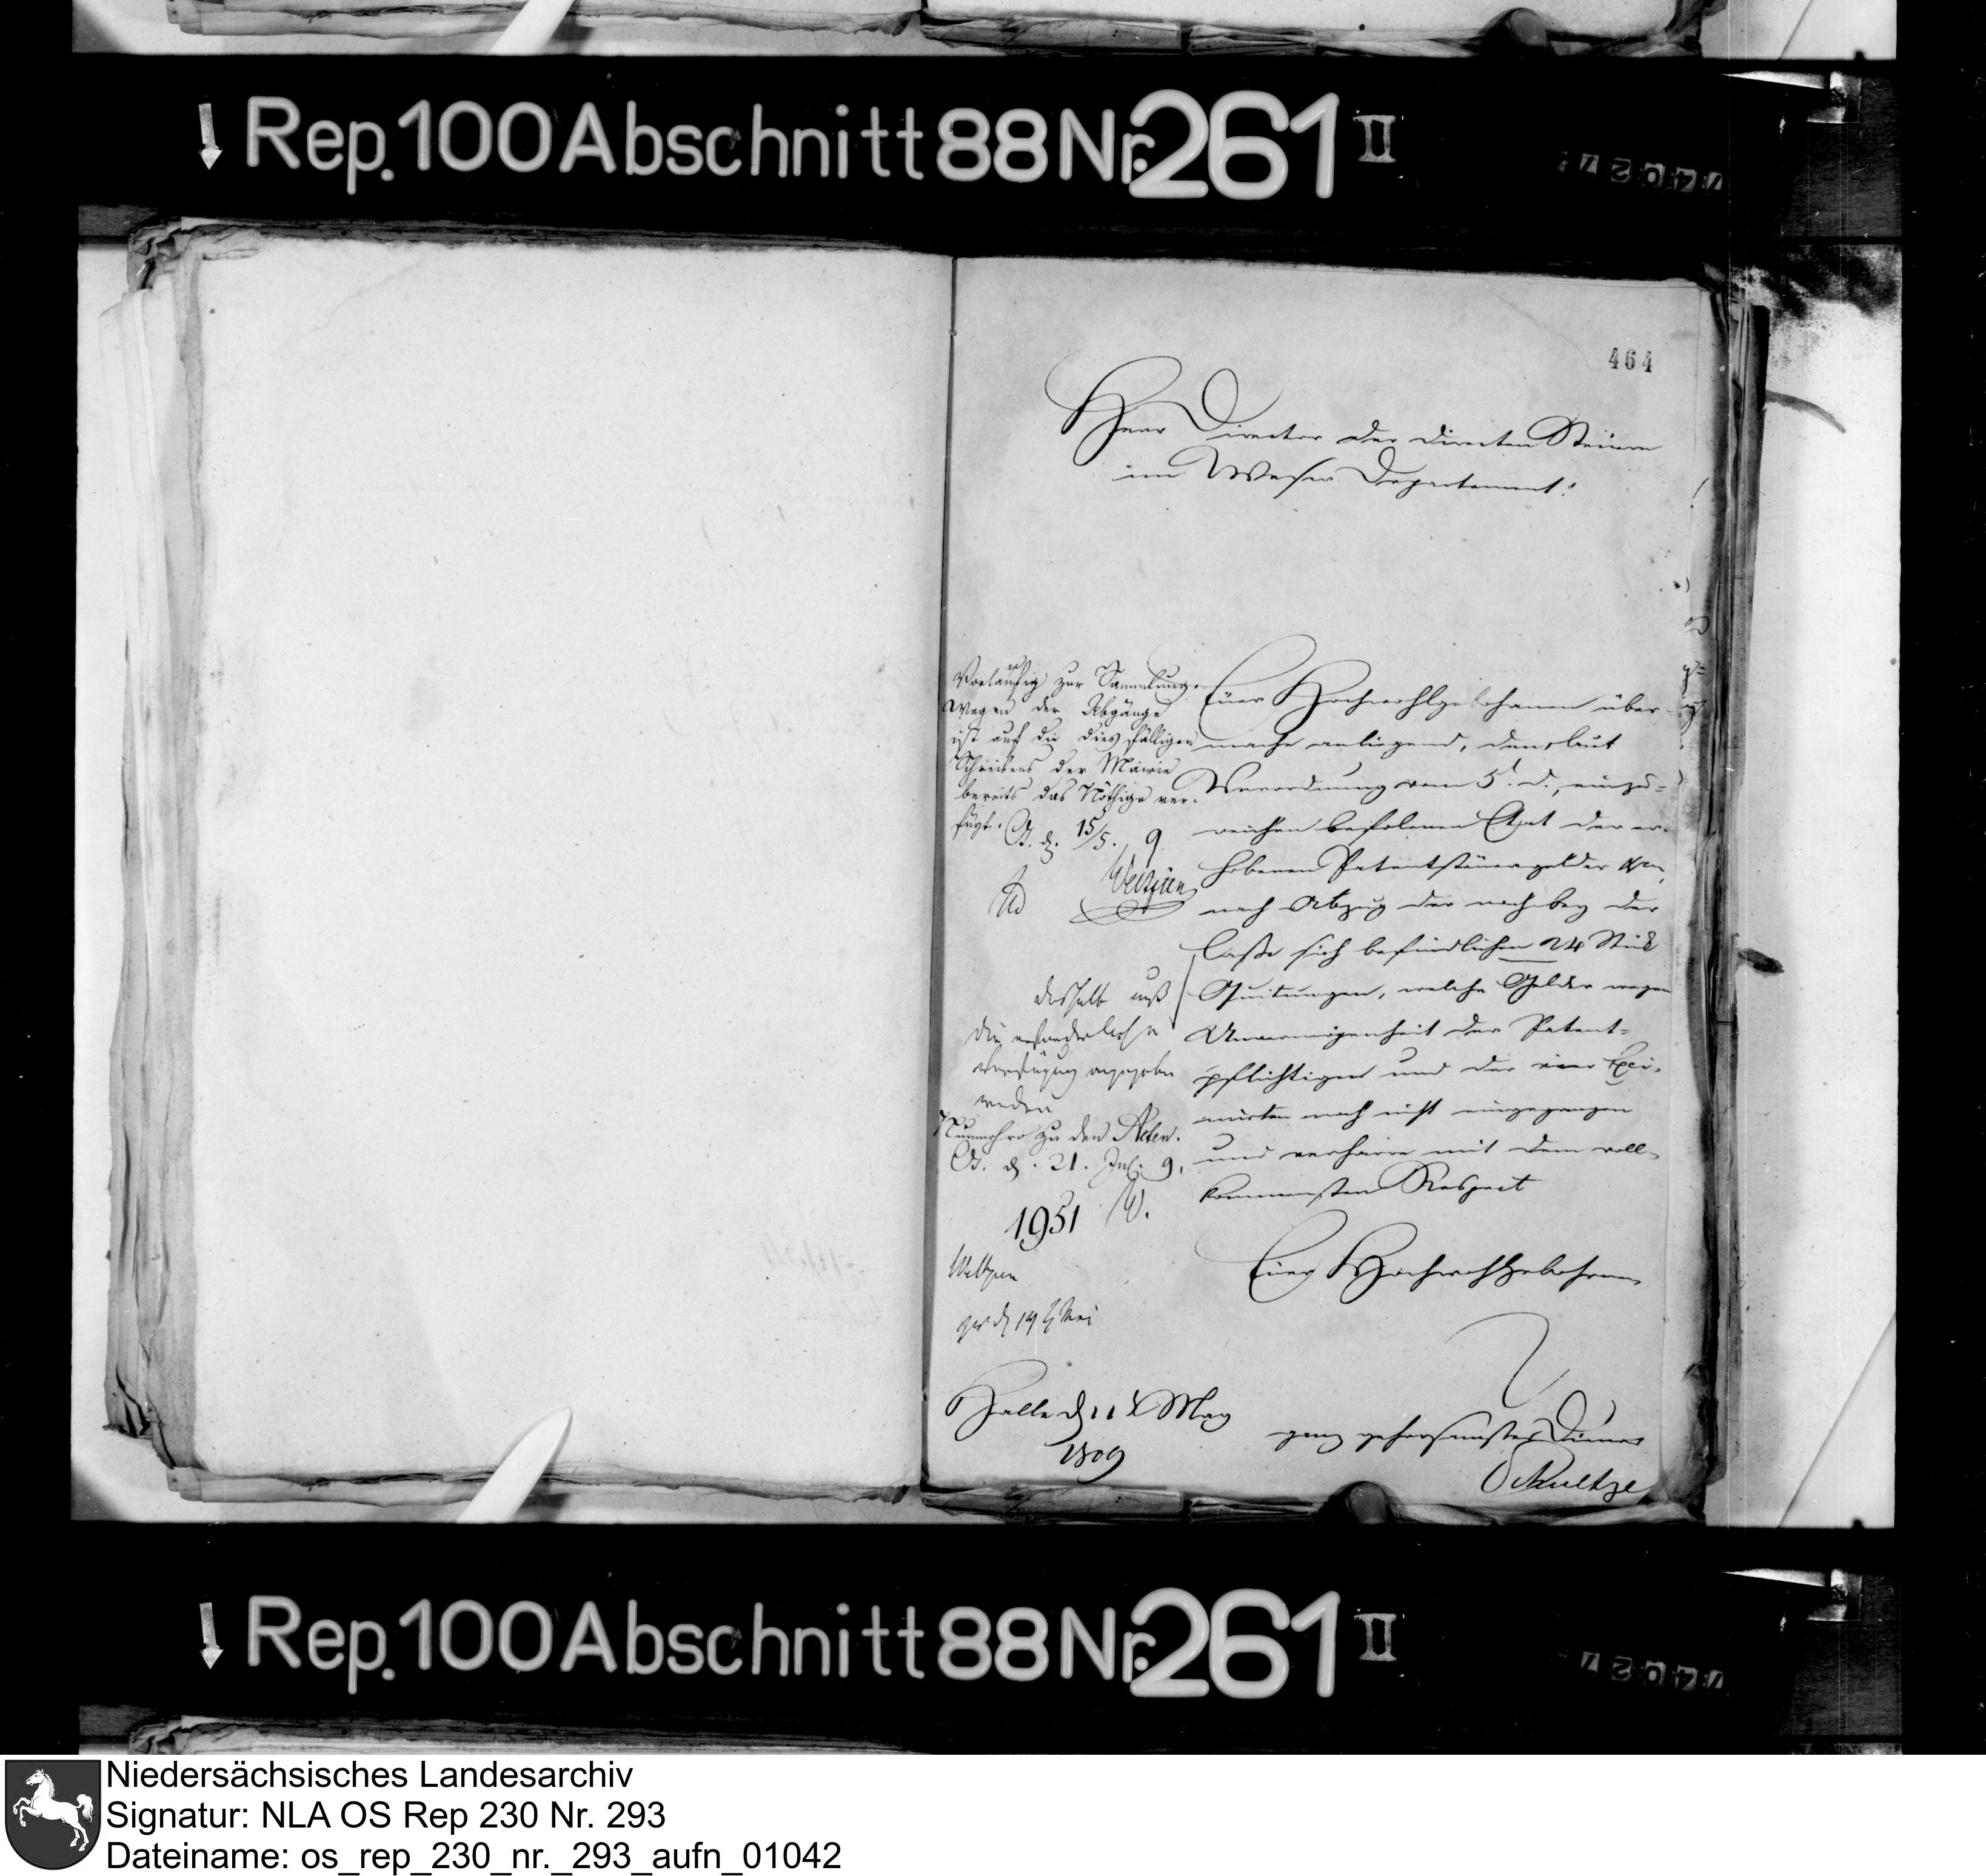 Rep. 100 Abschnitt 88 Nr. 261 II
464
Herr Director der directen Steuern
im Weser Departement!
Vorläufig zur Sammlung.
Wegen der Abgänge
ist auf die diesfälligen
Schreibens der Mairie
bereits das Nöthige ver-
fügt. O. d. 15/5. 9
deshalb muß
die erforderliche
Verfügung
werden
Nunmehro zu den Acten.
O. d. 21. Jul. 9.
1951
d 14 t Mai
Euer Hochwohlgebohrnen über-
mache anliegend, den, laut
Verordnung vom 5t. d., einzu-
reichen befohlenen Etat der er-
hobenen Patentsteuergelder
nach Abzug der noch bey der
Casse sich befindlichen 24 Stück
Quitungen, welche Gelder wegen
Unvermögenheit der Patent-
pflichtigen und der Exi-
mirten noch nicht eingegangen
und verharre mit dem voll-
kommensten Respect
Euer Hochwohlgebohrnen
Halle d 11 t May
1809
ganz gehorsamster Diener
Schultze
Rep. 100 Abschnitt 88 Nr. 261 II
Niedersächsisches Landesarchiv
Signatur: NLA OS Rep 230 Nr. 293
Dateiname: os_rep_230_nr._293_aufn_01042